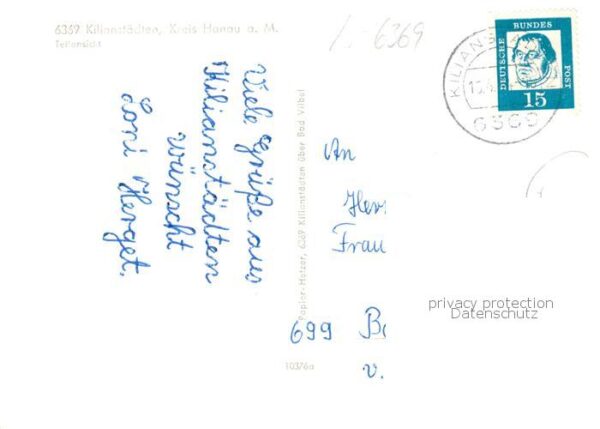 6369 Kilianstädten, Kreis Hanau a. M.
Teilansicht
6369
DEUTSCHE BUNDES POST
15
KILIANS
6369
Viele Grüße aus
Kilianstädten
wünscht
Loni Herget.
Papier-Hetzer, 6369 Kilianstädten über Bad Vilbel
An
Herr
Frau
699 B
v.
privacy protection
Datenschutz
10376a